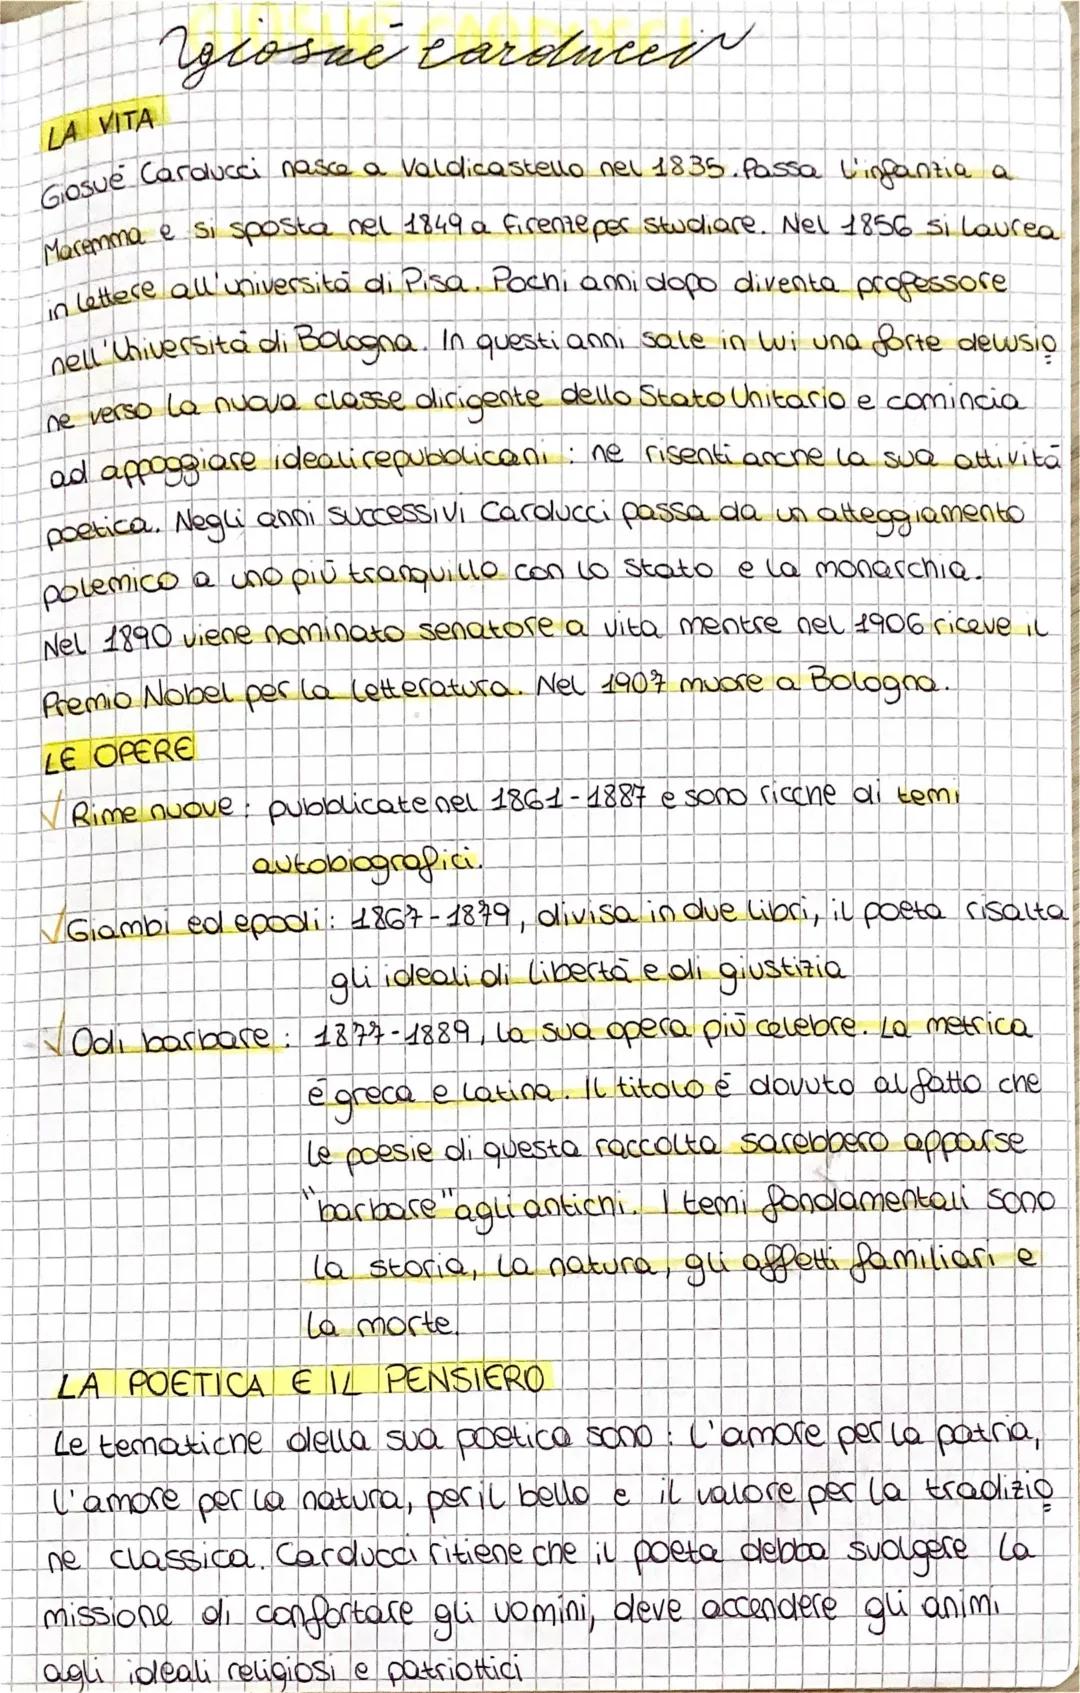 Giosuè Carducci
LA VITA
Giosuè Carducci nasce a Valdicastello nel 1835. Passa l'infanzia a
Maremma e si sposta nel 1849 a Firenze per studiare. Nel 1856 si laurea
in lettere all'università di Pisa. Pochi anni dopo diventa professore
nell'Università di Bologna. In questi anni sale in lui una forte delusio
ne verso la nuova classe dirigente dello Stato Unitario e comincia
ad appoggiare ideali repubblicani : ne risenti anche la sua attività
poetica. Negli anni successivi Carducci passa da un atteggiamento
polemico a uno più tranquillo con lo Stato e la monarchia.
Nel 1890 viene nominato senatore a vita mentre nel 1906 riceve il
Premio Nobel per la letteratura. Nel 1907 muore a Bologna.
LE OPERE
√ Rime nuove : pubblicate nel 1861-1887 e sono ricche di temi
autobiografici.
√ Giambi ed epodi : 1867-1879, divisa in due libri, il poeta risalta
gli ideali di libertà e di giustizia
√ Odi barbare : 1877-1889, la sua opera più celebre. La metrica
è greca e latina. Il titolo è dovuto al fatto che
le poesie di questa raccolta sarebbero apparse
"barbare" agli antichi. I temi fondamentali sono
la storia, la natura, gli affetti familiari e
la morte.
LA POETICA E IL PENSIERO
Le tematiche della sua poetica sono : l'amore per la patria,
l'amore per la natura, per il bello e il valore per la tradizio
ne classica. Carducci ritiene che il poeta debba svolgere la
missione di confortare gli uomini, deve accendere gli animi
agli ideali religiosi e patriottici